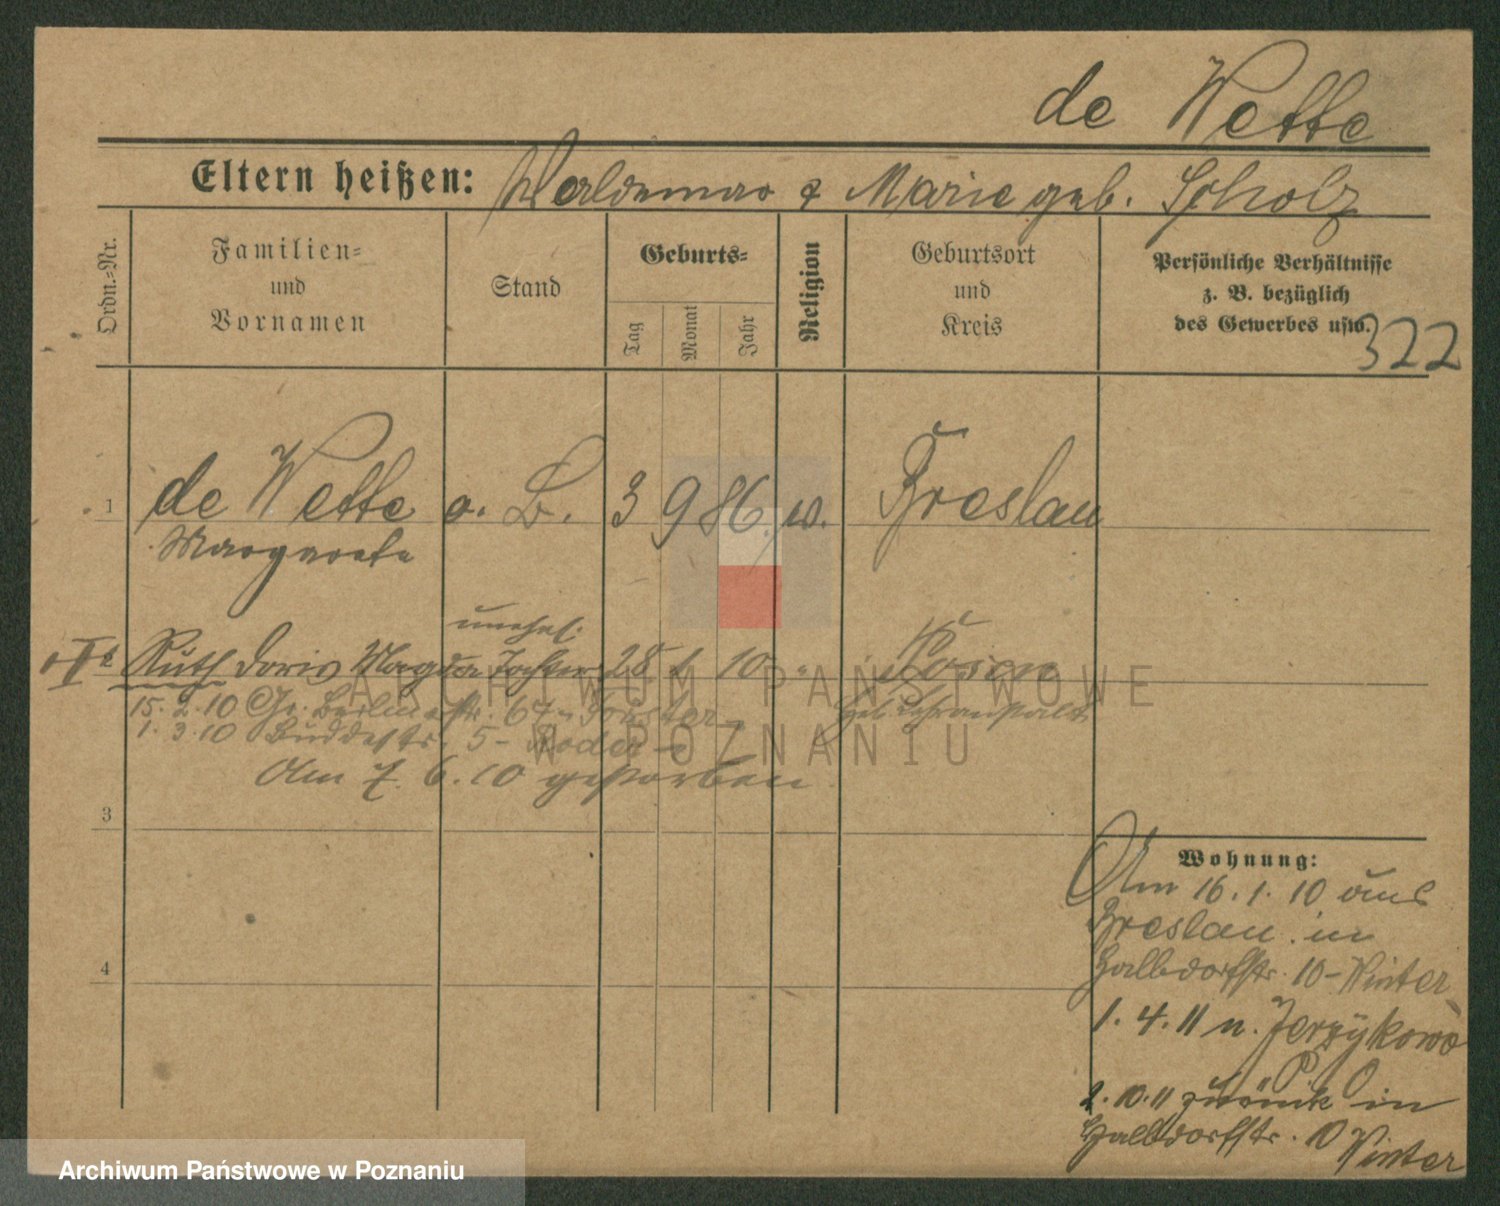 de Wette
Eltern heißen: Waldemar & Marie geb. Scholz
Ordn.-Nr.
Familien-
und
Vornamen
Stand
Geburts-
Tag
Monat
Jahr
Religion
Geburtsort
und
Kreis
Persönliche Verhältnisse
z. B. bezüglich
des Gewerbes usw.
322
1 de Wette o. B. 3 9 86. w. Breslau
Margarete
unehel.
2 Ruth Doris Magda Tochter 28 1 10 " Posen
15. 2. 10 Gr. Berlinerstr. 67 Förster
1. 3. 10 Buddestr. 5 -
Am 7. 6. 10 gestorben
3
4
Wohnung:
Am 16. 1. 10 aus
Breslau in
Halbdorfstr. 10 - Winter
1. 4. 11 n. Jerzykowo
P. O
2. 10. 11 zurück in
Halbdorfstr. 10
Winter
ARCHIWUM PAŃSTWOWE
W POZNANIU
Archiwum Państwowe w Poznaniu